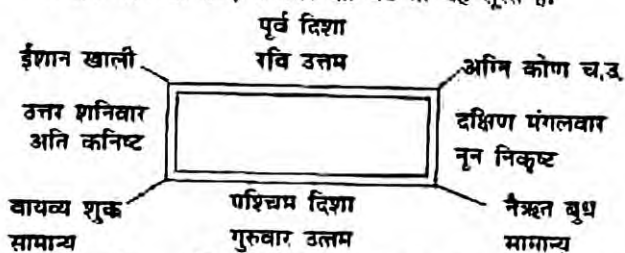 पूर्व दिशा
रवि उत्तम
ईशान खाली
अग्नि कोण च.उ.
उत्तर शनिवार
अति कनिष्ट
दक्षिण मंगलवार
नून निकृष्ट
वायव्य शुक्र
सामान्य
पश्चिम दिशा
गुरुवार उत्तम
नैऋत बुध
सामान्य